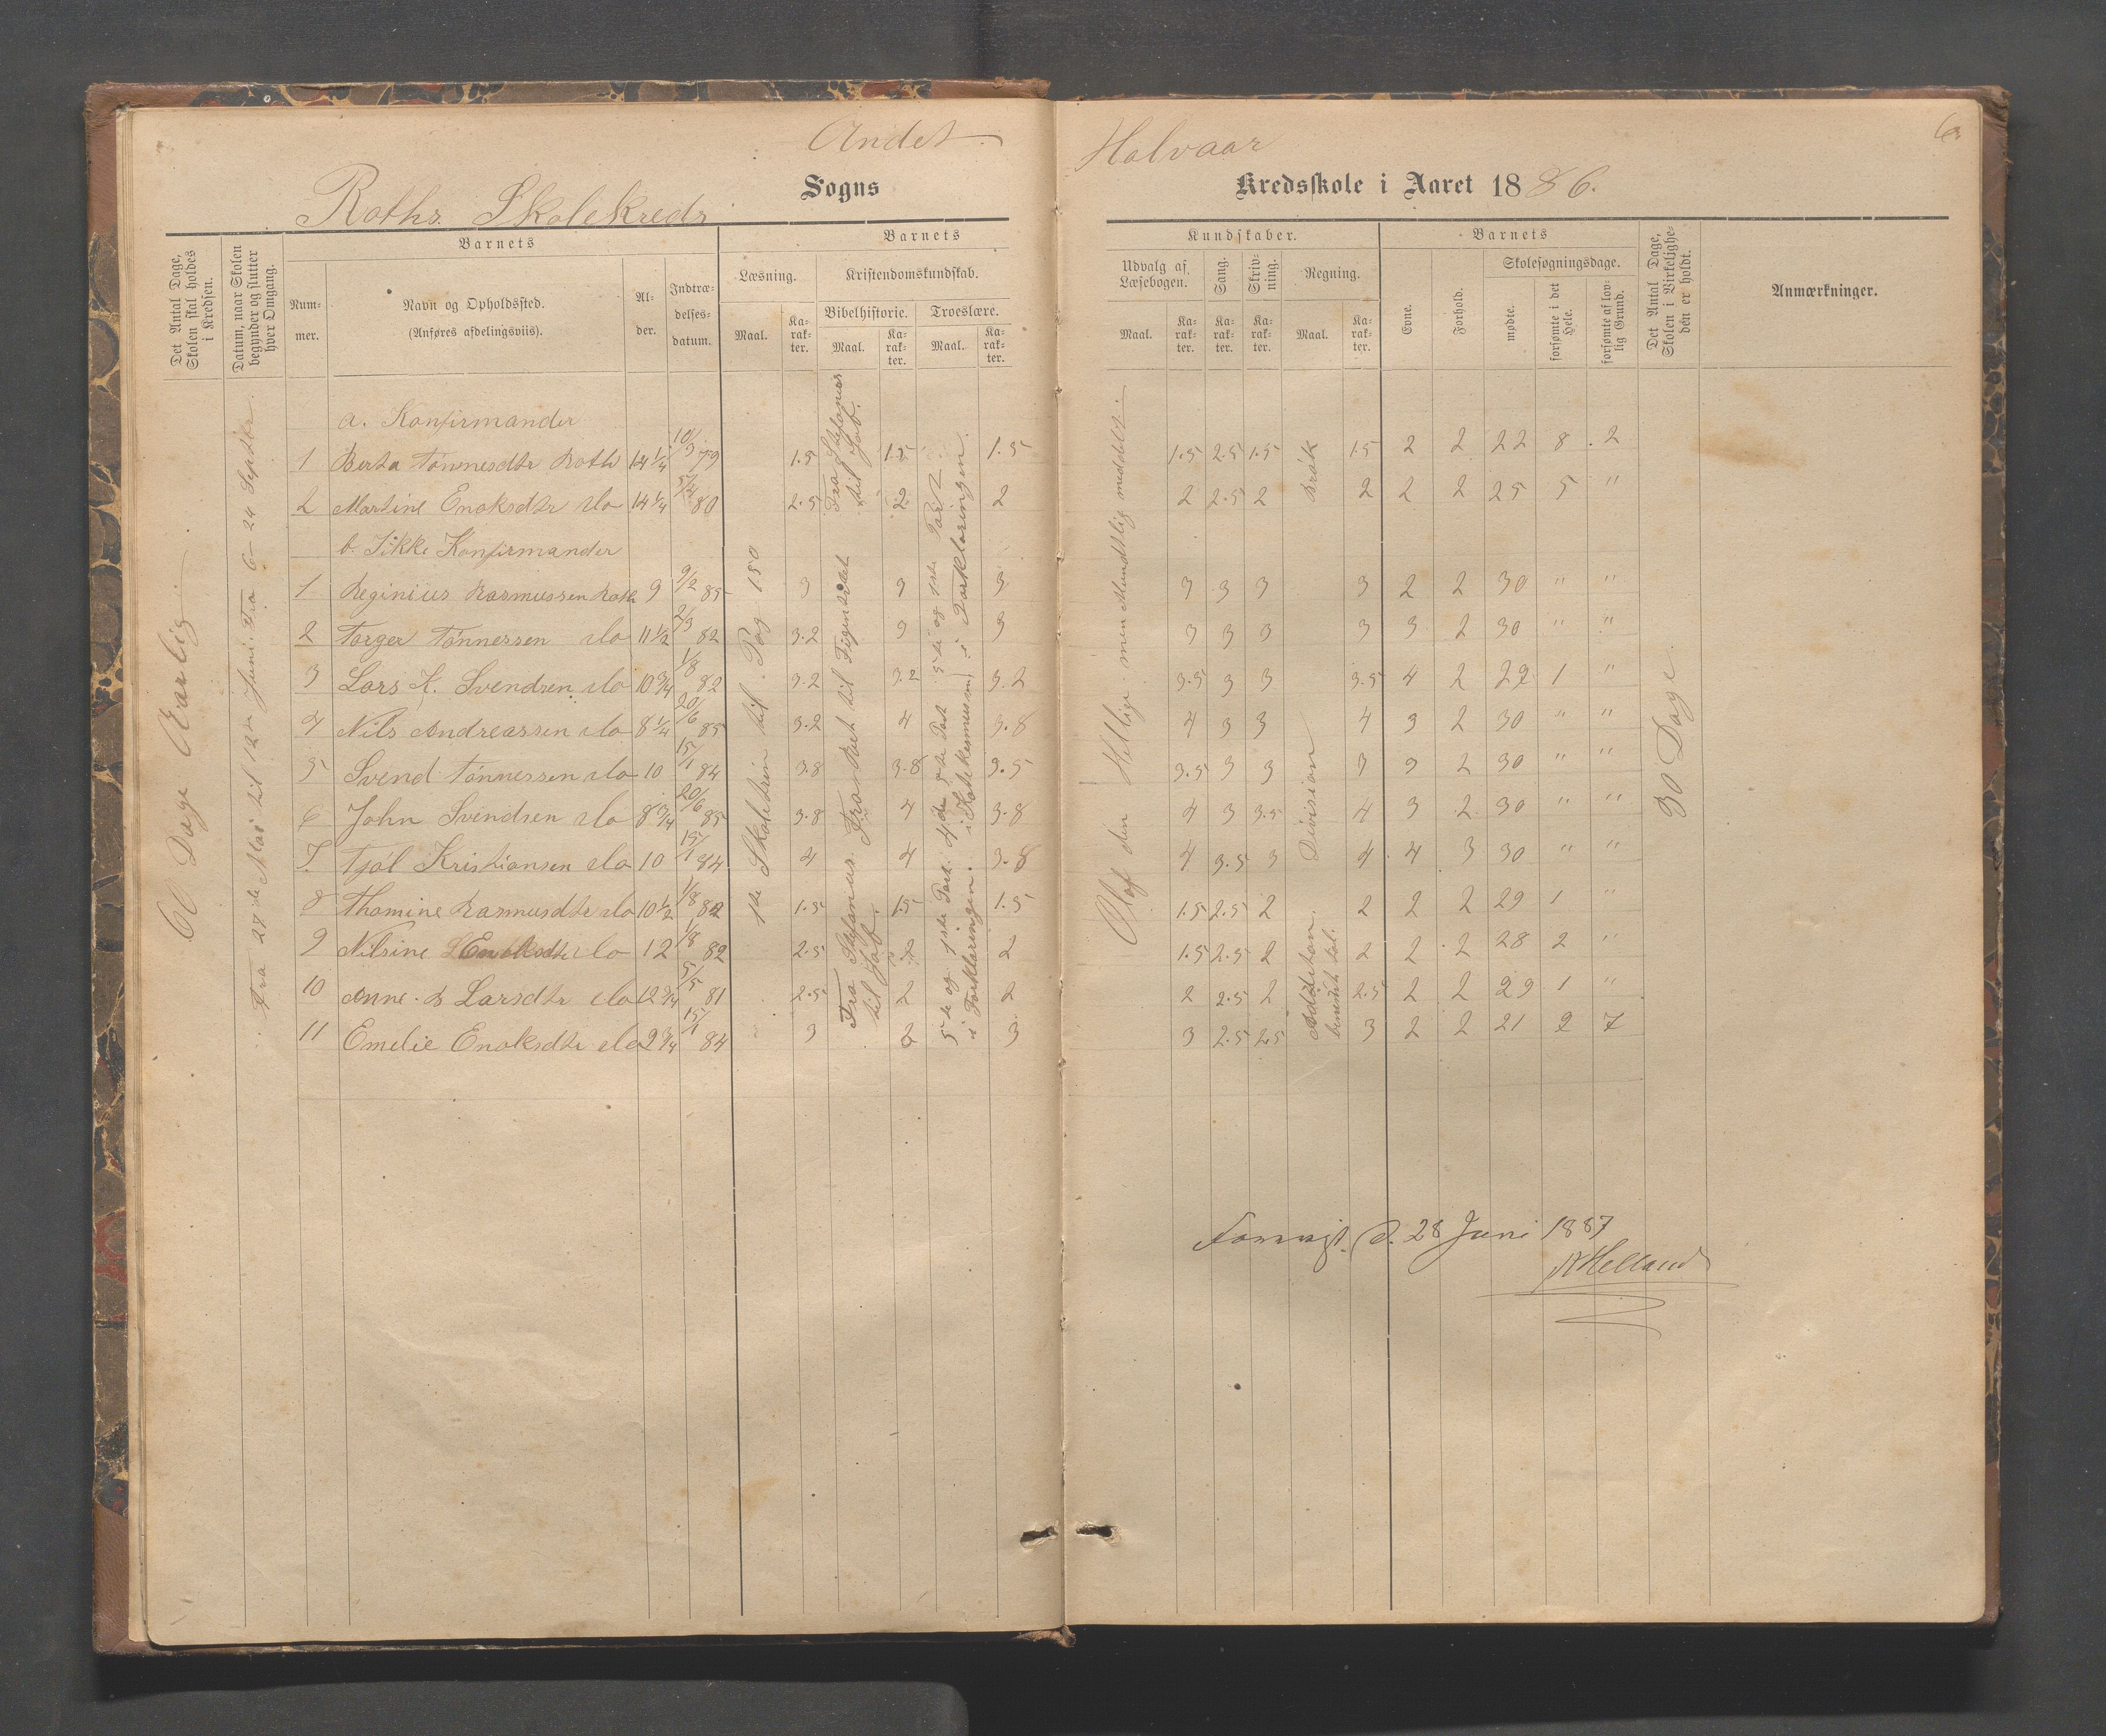 Andet
Halvaar
Roths Skolekreds
Sogns
Kredsskole i Aaret 1886.
Det Antal Dage, Skolen skal holdes i Kredsen.
Datum, naar Skolen begynder og slutter hver Omgang.
Barnets
Num-mer.
Navn og Opholdssted.
(Anføres afdelingsviis).
Al-der.
Indtræ-delses-datum.
Barnets
Læsning.
Maal.
Ka-rak-ter.
Kristendomskundskab.
Bibelhistorie.
Maal.
Ka-rak-ter.
Troeslære.
Maal.
Ka-rak-ter.
Kundskaber.
Udvalg af Læsebogen.
Maal.
Ka-rak-ter.
Sang.
Ka-rak-ter.
Skriv-ning.
Ka-rak-ter.
Regning.
Maal.
Ka-rak-ter.
Barnets
Evne.
Forhold.
Skolesøgningsdage.
mødte.
forsømte i det Hele.
forsømte af lov-lig Grund.
Det Antal Dage, Skolen i Virkelighe-den er holdt.
Anmærkninger.
60 Dage Aarlig
Fra 27de Mai til 12te Juni. Fra 6-24 Septbr.
a. Konfirmander
1 Berta Tønnesdtr Roth 14 1/4 10/3 79 1.5 1.5 1.5 1.5 2.5 1.5 1.5 2 2 22 8 2
2 Martine Enoksdtr do 14 1/4 80 2.5 2 2 2 2.5 2 2 2 2 25 5 "
b. Ikke Konfirmander
1 Reginius Rasmussen Roth 9 9/2 85 3 3 3 3 3 3 3 2 2 30 " "
2 Torger Tønnessen do 11 1/2 2/3 82 3.2 3 3 3 3 3 3 3 2 30 " "
3 Lars K. Svendsen do 10 3/4 1/8 82 3.2 3.2 3.2 3.5 3 3 3.5 4 2 29 1 "
4 Nils Andreassen do 8 1/4 20/6 85 3.2 4 3.8 4 3 3 4 3 2 30 " "
5 Svend Tønnessen do 10 15/1 84 3.8 3.8 3.5 3.5 3 3 3 3 2 30 " "
6 John Svendsen do 8 3/4 20/6 85 3.8 4 3.8 4 3 3.5 4 3 2 30 " "
7 Tjøl Kristiansen do 10 15/1 84 4 4 3.8 4 3.5 3 4 4 3 30 " "
8 Thomine Rasmusdtr do 10 1/2 1/8 82 1.5 1.5 1.5 1.5 2.5 2 2 2 2 29 1 "
9 Nilsine Enoksdtr do 12 1/8 82 2.5 2 2 1.5 2.5 2 2 2 2 28 2 "
10 Anne B Larsdtr do 12 3/4 5/5 81 2.5 2 2 2 2.5 2 2.5 2 2 29 1 "
11 Emelie Enoksdtr do 9 3/4 15/1 84 3 2 3 3 2.5 2.5 3 2 2 21 9 7
1ste Skoletrin til Pag 150
Fra Stefanus til Job.
Fra Stefanus til Job.
5te og 1ste Part i Forklaringen.
5te og 1ste Part i Forklaringen.
Olaf den Hellige men Mundtlig meddelt.
Brøk
Division
Addition
benævnte tal.
30 Dage
Fornvigt d. 28 Juni 1887
Helland